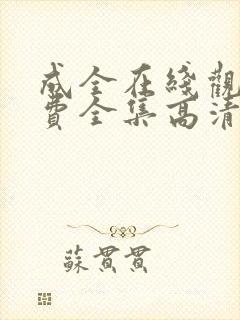 成全在綫觀
費全集高清
蘇貫貫